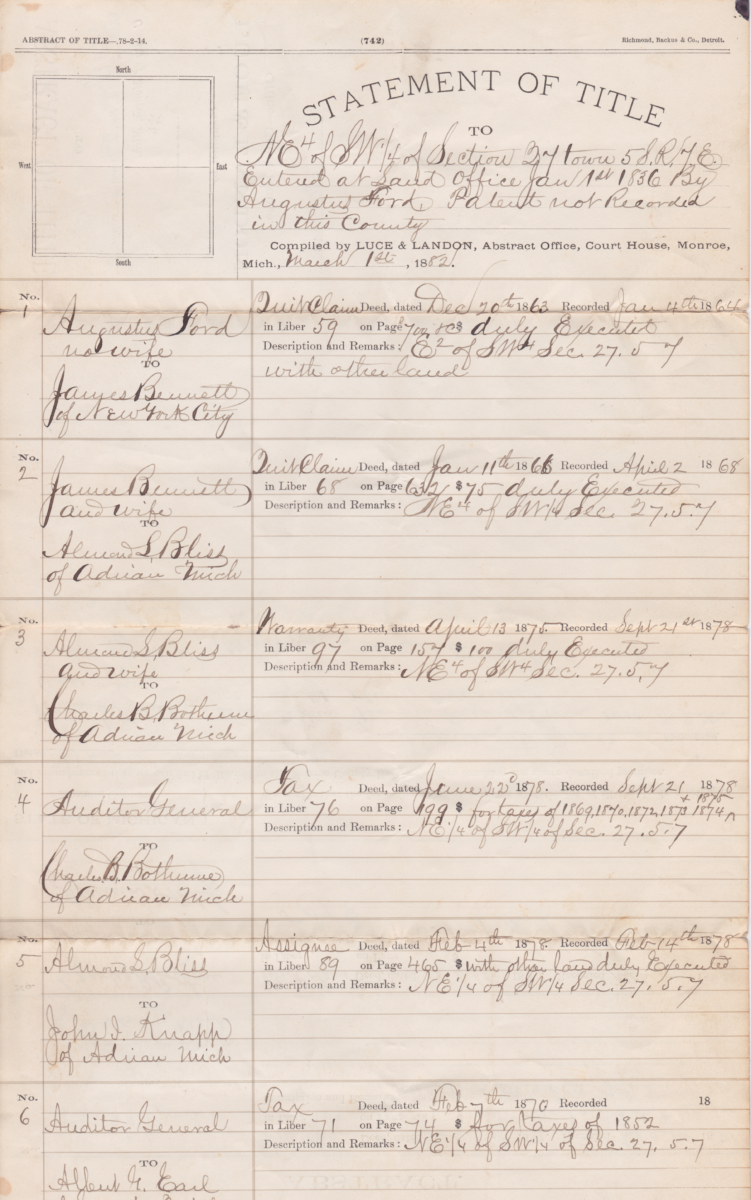 ABSTRACT OF TITLE—.78-2-14.
(742)
Richmond, Backus & Co., Detroit.
North
West
East
South
STATEMENT OF TITLE
TO
NE4 of SW1/4 of Section 27 town 5 S.R. 7 E
Entered at Land Office Jan 1st 1836 By
Augustus Ford, Patent not Recorded
in this County
Compiled by LUCE & LANDON, Abstract Office, Court House, Monroe,
Mich., March 1st, 1882.
No. 1
Augustus Ford
no wife
TO
James Bennett
of New York City
Quit Claim Deed, dated Dec 20th 1863 Recorded Jan 4th 1864
in Liber 59 on Page 702 $ duly Executed
Description and Remarks: E2 of SW4 Sec. 27. 5 7
with other land
No. 2
James Bennett
and wife
TO
Almond S. Bliss
of Adrian Mich
Quit Claim Deed, dated Jan 11th 1866 Recorded April 2 1868
in Liber 68 on Page 632 $75 duly Executed
Description and Remarks: NE4 of SW1/4 Sec. 27. 5. 7
No. 3
Almond S. Bliss
and wife
TO
Charles B. Bothume
of Adrian Mich
Warranty Deed, dated April 13 1875 Recorded Sept 21st 1878
in Liber 97 on Page 157 $100 duly Executed
Description and Remarks: NE4 of SW4 Sec. 27. 5, 7
No. 4
Auditor General
TO
Charles B. Bothume
of Adrian Mich
Tax Deed, dated June 22d 1878. Recorded Sept 21 1878
in Liber 76 on Page 199 $ for taxes of 1869, 1870, 1872, 1873 1874 + 1875
Description and Remarks: NE1/4 of SW1/4 of Sec. 27. 5.7
No. 5
Almond S. Bliss
TO
John I. Knapp
of Adrian Mich
Assignee Deed, dated Feb 4th 1878. Recorded Feb 14th 1878
in Liber 89 on Page 465 $ with other land duly Executed
Description and Remarks: NE1/4 of SW1/4 Sec. 27. 5. 7
No. 6
Auditor General
TO
Albert G. Earl
Tax Deed, dated Feb 7th 1870 Recorded 18
in Liber 71 on Page 74 $ for taxes of 1852
Description and Remarks: NE1/4 of SW1/4 of Sec. 27. 5.7